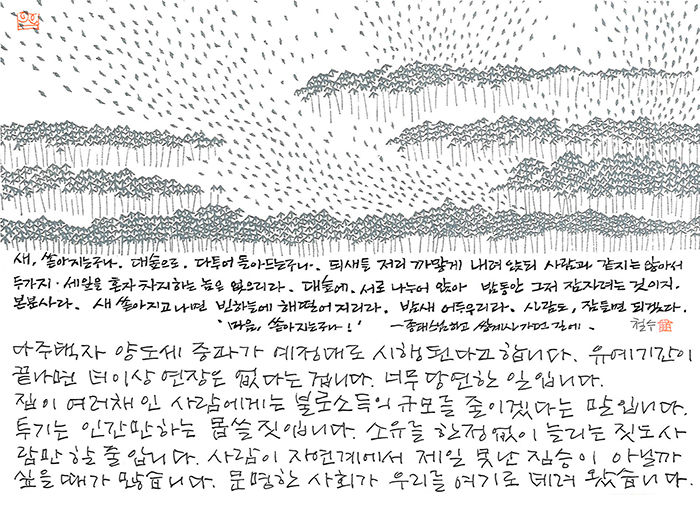 새, 쏟아지는구나. 대숲으로. 다투어 돌아드는구나. 띄새들 저리 까맣게 내려 앉되 사람과 같지는 않아서
두가지·세잎을 혼자 차지하는 놈은 없으리라. 대숲에. 서로 나누어 앉아 밤동안 그저 잠자려는 것이지.
본분사라. 새 쏟아지고 나면 빈하늘에 해 떨어 지리라. 밤새 어두우리라. 사람도, 잠들면 되겠다.
'마음, 쏟아지는구나!' 가던 길에. 철수
다주택자 양도세 중과가 예정대로 시행된다고 합니다. 유예기간이
끝나면 더이상 연장은 없다는 겁니다. 너무 당연한 일입니다.
집이 여러채인 사람에게는 불로소득의 규모를 줄이겠다는 말입니다.
투기는 인간만하는 몹쓸 짓입니다. 소유를 한정없이 늘리는 짓도 사
람만 할 줄 압니다. 사람이 자연계에서 제일 못난 짐승이 아닐까
싶을 때가 많습니다. 문명한 사회가 우리를 여기로 데려 왔습니다.